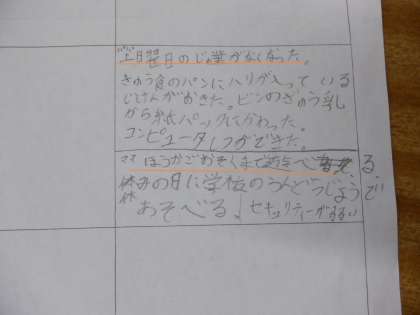 土曜日のじゅ業がなくなった。
きゅう食のパンにハリが入っている
じけんがおきた。ビンのぎゅう乳
から紙パックにかわった。
コンピュータしつができた。
ママ ほうかごおそくまで遊べる
休みの日に学校のうんどうじょうで
あそべる! セキュリティーがゆるい